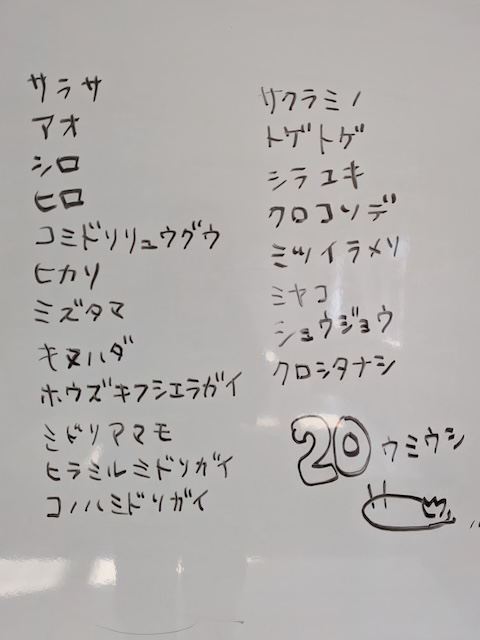 サラサ
アオ
シロ
ヒロ
コミドリリュウグウ
ヒカリ
ミズタマ
キヌハダ
ホウズキフシエラガイ
ミドリアマモ
ヒラミルミドリガイ
コノハミドリガイ
サクラミノ
トゲトゲ
シラユキ
クロコソデ
ミツイラメリ
ミヤコ
ショウジョウ
クロシタナシ
20 ウミウシ